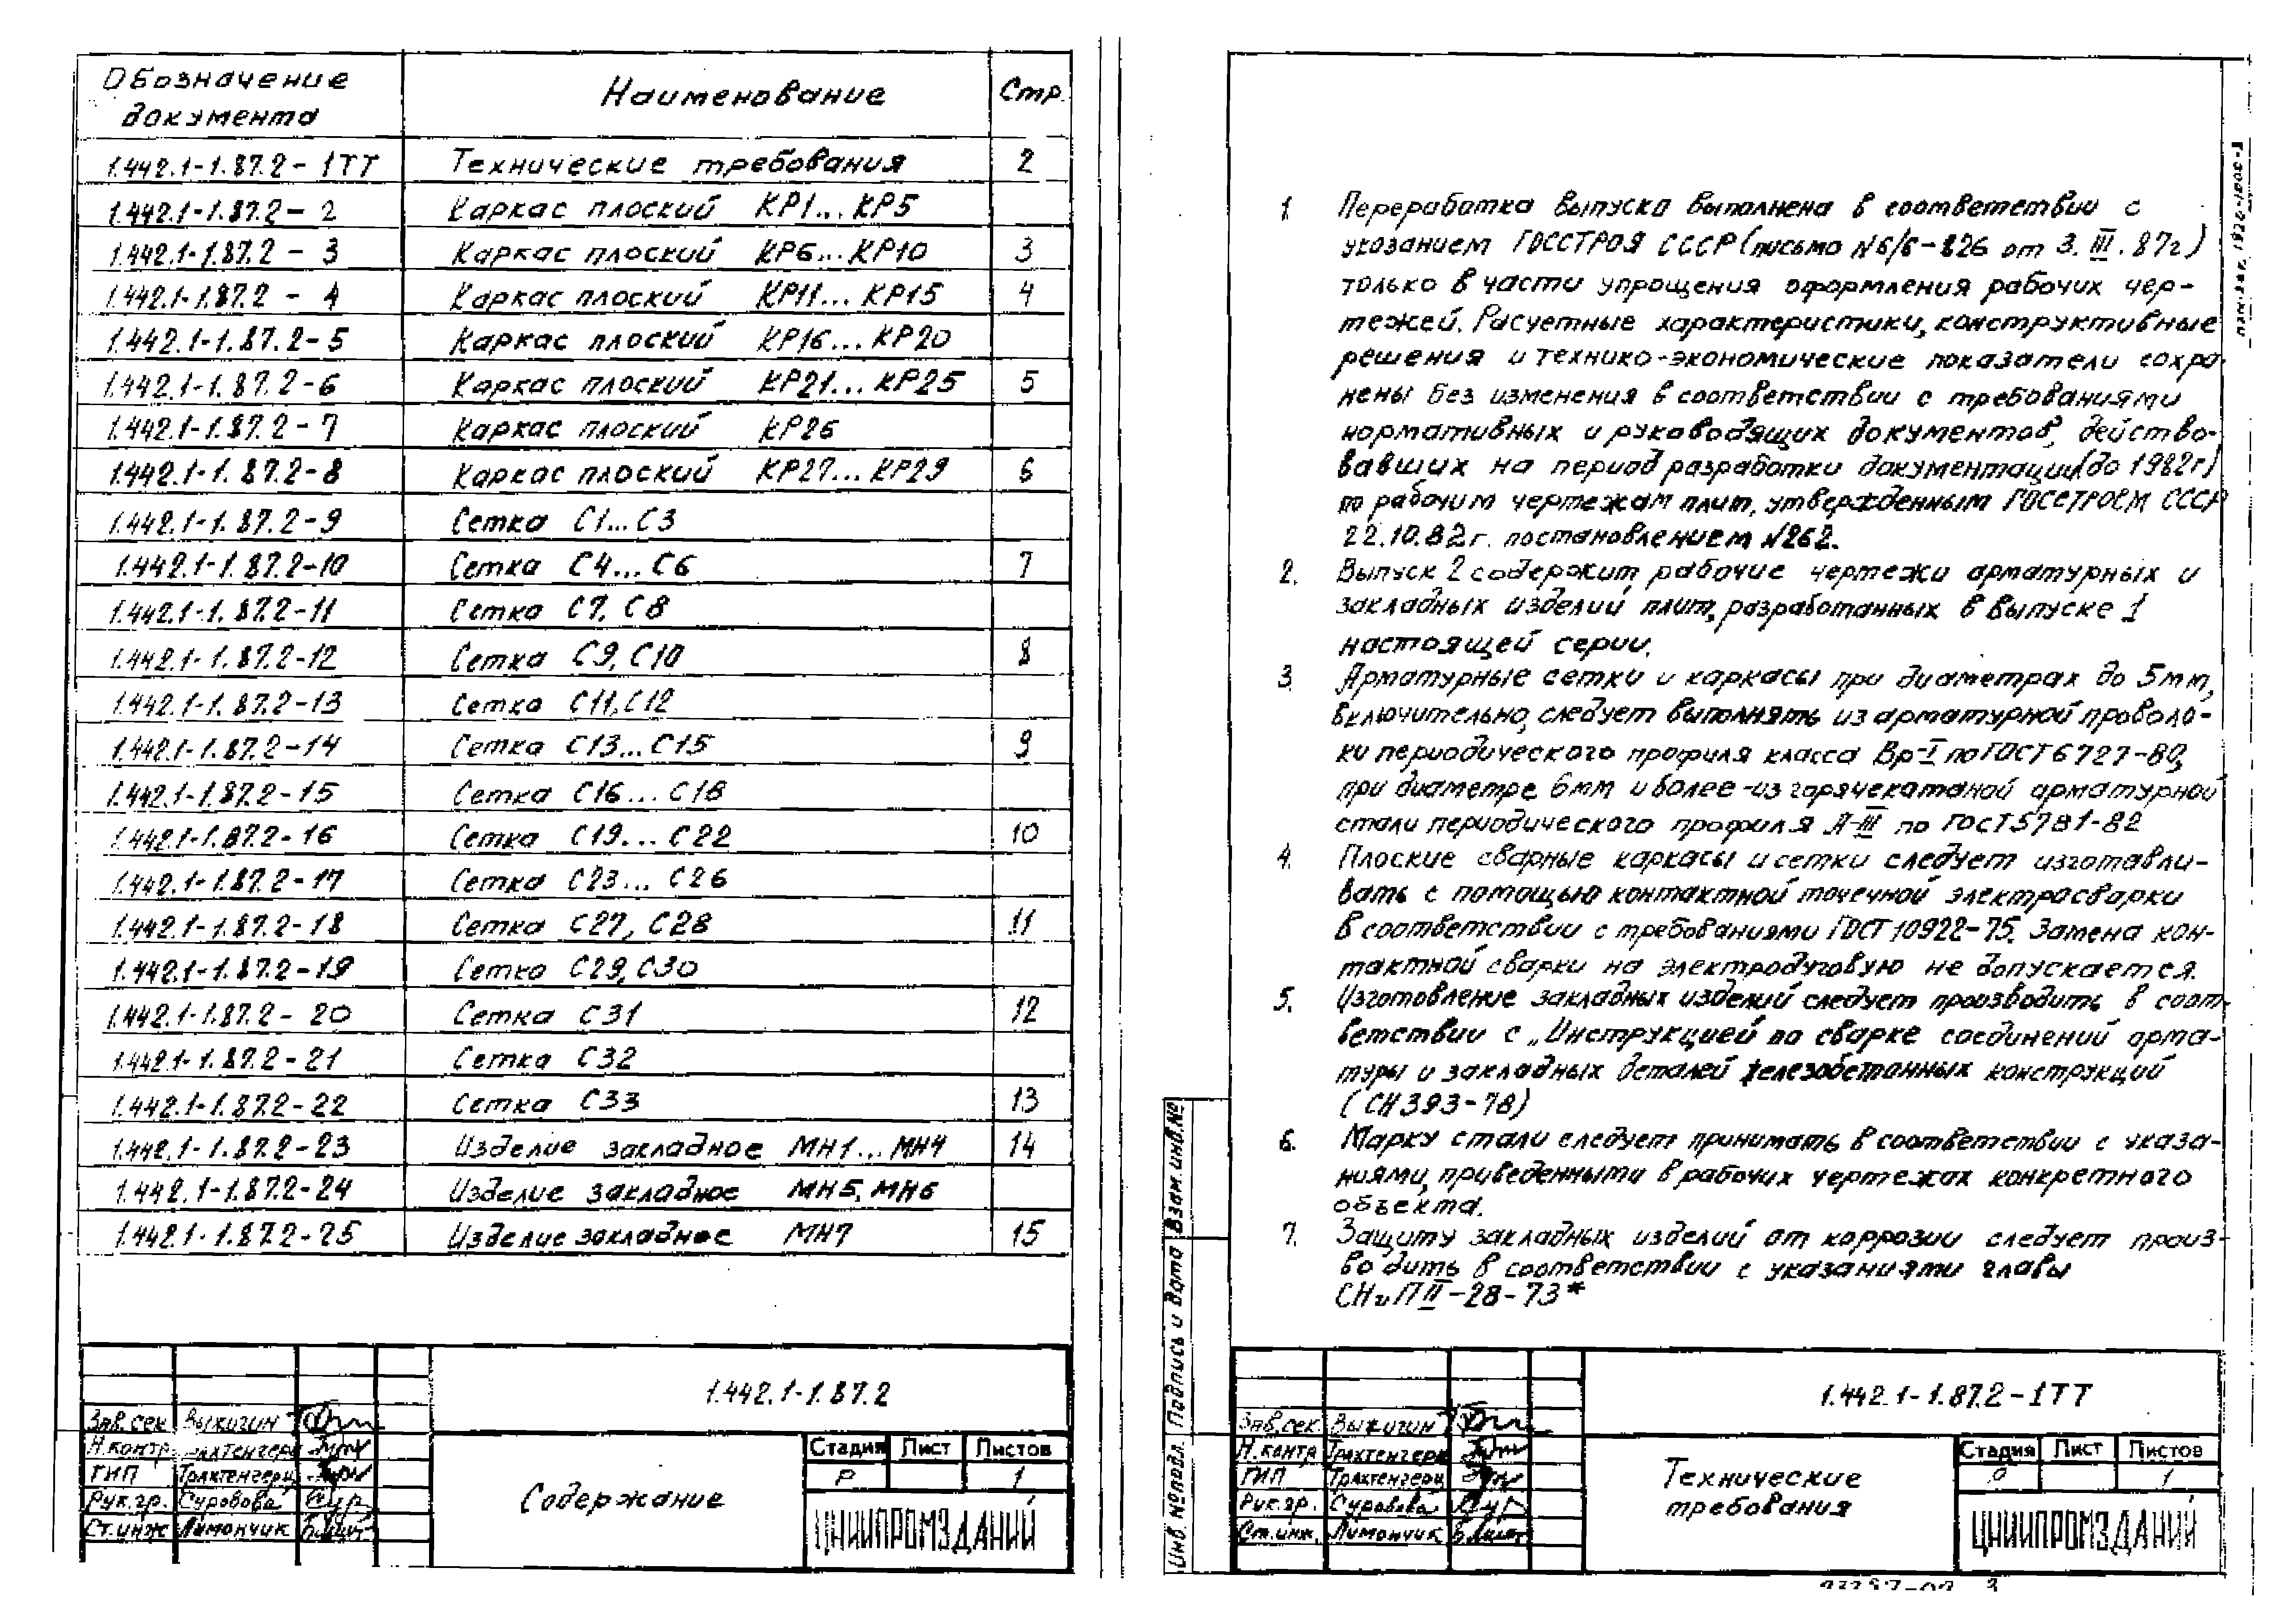 Обозначение документа Наименование Стр.
1.442.1-1.87.2-1ТТ Технические требования 2
1.442.1-1.87.2-2 Каркас плоский КР1...КР5
1.442.1-1.87.2-3 Каркас плоский КР6...КР10 3
1.442.1-1.87.2-4 Каркас плоский КР11...КР15 4
1.442.1-1.87.2-5 Каркас плоский КР16...КР20
1.442.1-1.87.2-6 Каркас плоский КР21...КР25 5
1.442.1-1.87.2-7 Каркас плоский КР26
1.442.1-1.87.2-8 Каркас плоский КР27...КР29 6
1.442.1-1.87.2-9 Сетка С1...С3
1.442.1-1.87.2-10 Сетка С4...С6 7
1.442.1-1.87.2-11 Сетка С7, С8
1.442.1-1.87.2-12 Сетка С9, С10 8
1.442.1-1.87.2-13 Сетка С11, С12
1.442.1-1.87.2-14 Сетка С13...С15 9
1.442.1-1.87.2-15 Сетка С16...С18
1.442.1-1.87.2-16 Сетка С19...С22 10
1.442.1-1.87.2-17 Сетка С23...С26
1.442.1-1.87.2-18 Сетка С27, С28 11
1.442.1-1.87.2-19 Сетка С29, С30
1.442.1-1.87.2-20 Сетка С31 12
1.442.1-1.87.2-21 Сетка С32
1.442.1-1.87.2-22 Сетка С33 13
1.442.1-1.87.2-23 Изделие закладное МН1...МН4 14
1.442.1-1.87.2-24 Изделие закладное МН5, МН6
1.442.1-1.87.2-25 Изделие закладное МН7 15
1.442.1-1.87.2
Зав.сек. Выжигин
Н.контр. Трахтенгерц
ГИП Трахтенгерц
Рук.гр. Суровова
Ст.инж. Лимончик
Содержание
Стадия Лист Листов
Р 1
ЦНИИПРОМЗДАНИЙ
1. Переработка выпуска выполнена в соответствии с
указанием ГОССТРОЯ СССР (письмо №6/6-826 от 3.III.87г)
только в части упрощения оформления рабочих чер-
тежей. Расчетные характеристики, конструктивные
решения и технико-экономические показатели сохра-
нены без изменения в соответствии с требованиями
нормативных и руководящих документов, действо-
вавших на период разработки документации (до 1982г)
по рабочим чертежам плит, утвержденным ГОССТРОЕМ СССР
22.10.82г. постановлением №262.
2. Выпуск 2 содержит рабочие чертежи арматурных и
закладных изделий плит, разработанных в выпуске 1
настоящей серии.
3. Арматурные сетки и каркасы при диаметрах до 5мм,
включительно, следует выполнять из арматурной проволо-
ки периодического профиля класса Вр-I по ГОСТ 6727-80,
при диаметре 6мм и более - из горячекатаной арматурной
стали периодического профиля А-III по ГОСТ 5781-82
4. Плоские сварные каркасы и сетки следует изготавли-
вать с помощью контактной точечной электросварки
в соответствии с требованиями ГОСТ 10922-75. Замена кон-
тактной сварки на электродуговую не допускается.
5. Изготовление закладных изделий следует производить в соот-
ветствии с „Инструкцией по сварке соединений арма-
туры и закладных деталей железобетонных конструкций
(СН 393-78)
6. Марку стали следует принимать в соответствии с указа-
ниями, приведенными в рабочих чертежах конкретного
объекта.
7. Защиту закладных изделий от коррозии следует произ-
водить в соответствии с указаниями главы
СНиП II-28-73*
Инв. № подл. Подпись и дата Взам. инв. №
1.442.1-1.87.2-1ТТ
Зав.сек. Выжигин
Н.контр. Трахтенгерц
ГИП Трахтенгерц
Рук.гр. Суровова
Ст.инж. Лимончик
Технические
требования
Стадия Лист Листов
Р 1
ЦНИИПРОМЗДАНИЙ